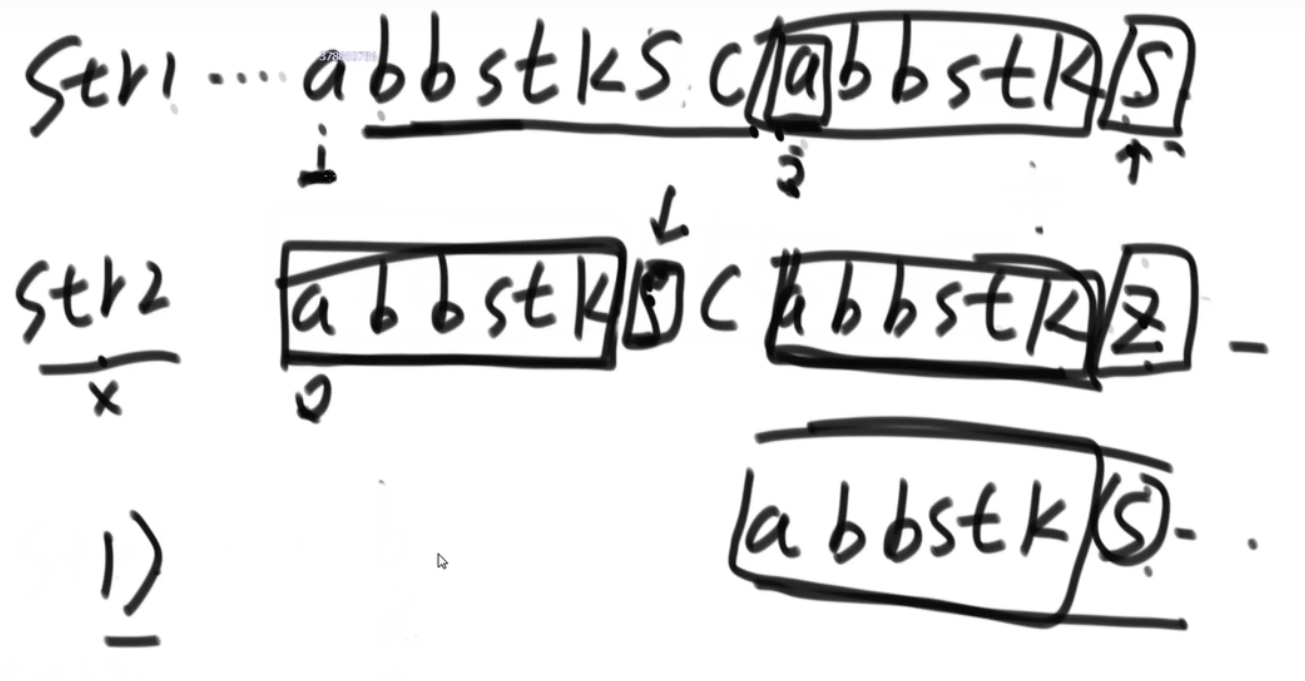 str1 .... a b b s t k s c a b b s t k s
i 2
str2 a b b s t k s c a b b s t k z
x 0
a b b s t k s
1)